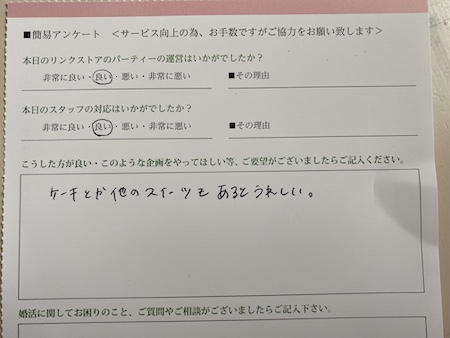 ■簡易アンケート ＜サービス向上の為、お手数ですがご協力をお願い致します＞
本日のリンクストアのパーティーの運営はいかがでしたか？
非常に良い・良い・悪い・非常に悪い ■その理由
本日のスタッフの対応はいかがでしたか？
非常に良い・良い・悪い・非常に悪い ■その理由
こうした方が良い・このような企画をやってほしい等、ご要望がございましたらご記入ください。
ケーキとか他のスイーツも あるとうれしい。
婚活に関してお困りのこと、ご質問やご相談がございましたらご記入下さい。